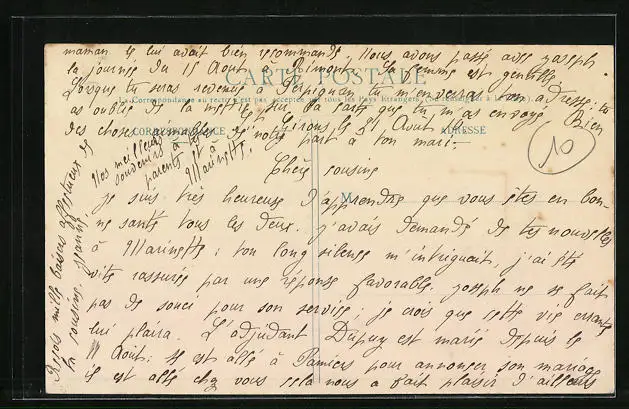 St Girons, le 21 Août 1
Chère cousine
je suis très heureuse d'apprendre que vous êtes en bon-
ne santé tous les deux. j'avais demandé de tes nouvelles
à Marinette; ton long silence m'intriguait, j'ai été
vite rassurée par une réponse favorable. joseph ne se fait
pas de souci pour son service; je crois que cette vie errante
lui plaira. L'adjudant Dupuy est marié depuis le
11 Août; il est allé à Pamiers pour annoncer son mariage
il est allé chez vous cela nous a fait plaisir d'ailleurs
maman le lui avait bien recommandé, Nous avons passé avec joseph
la journée du 15 Août à Rimont. Sa femme est gentille.
Lorsque tu seras revenue à Perpignan tu m'enverras ton adresse; tu
as oublié de la mettre sur la carte que tu m'as envoyé. Bien
des choses aimables de notre part à ton mari.
Nos meilleurs
souvenirs à tes
parents et à
Marinette.
Reçois mille baisers affectueux de
ta cousine. Jeanne
CARTE POSTALE
La Correspondance au recto n'est pas acceptée par tous les Pays Etrangers. (Se renseigner à la Poste)
CORRESPONDANCE
ADRESSE
M
10